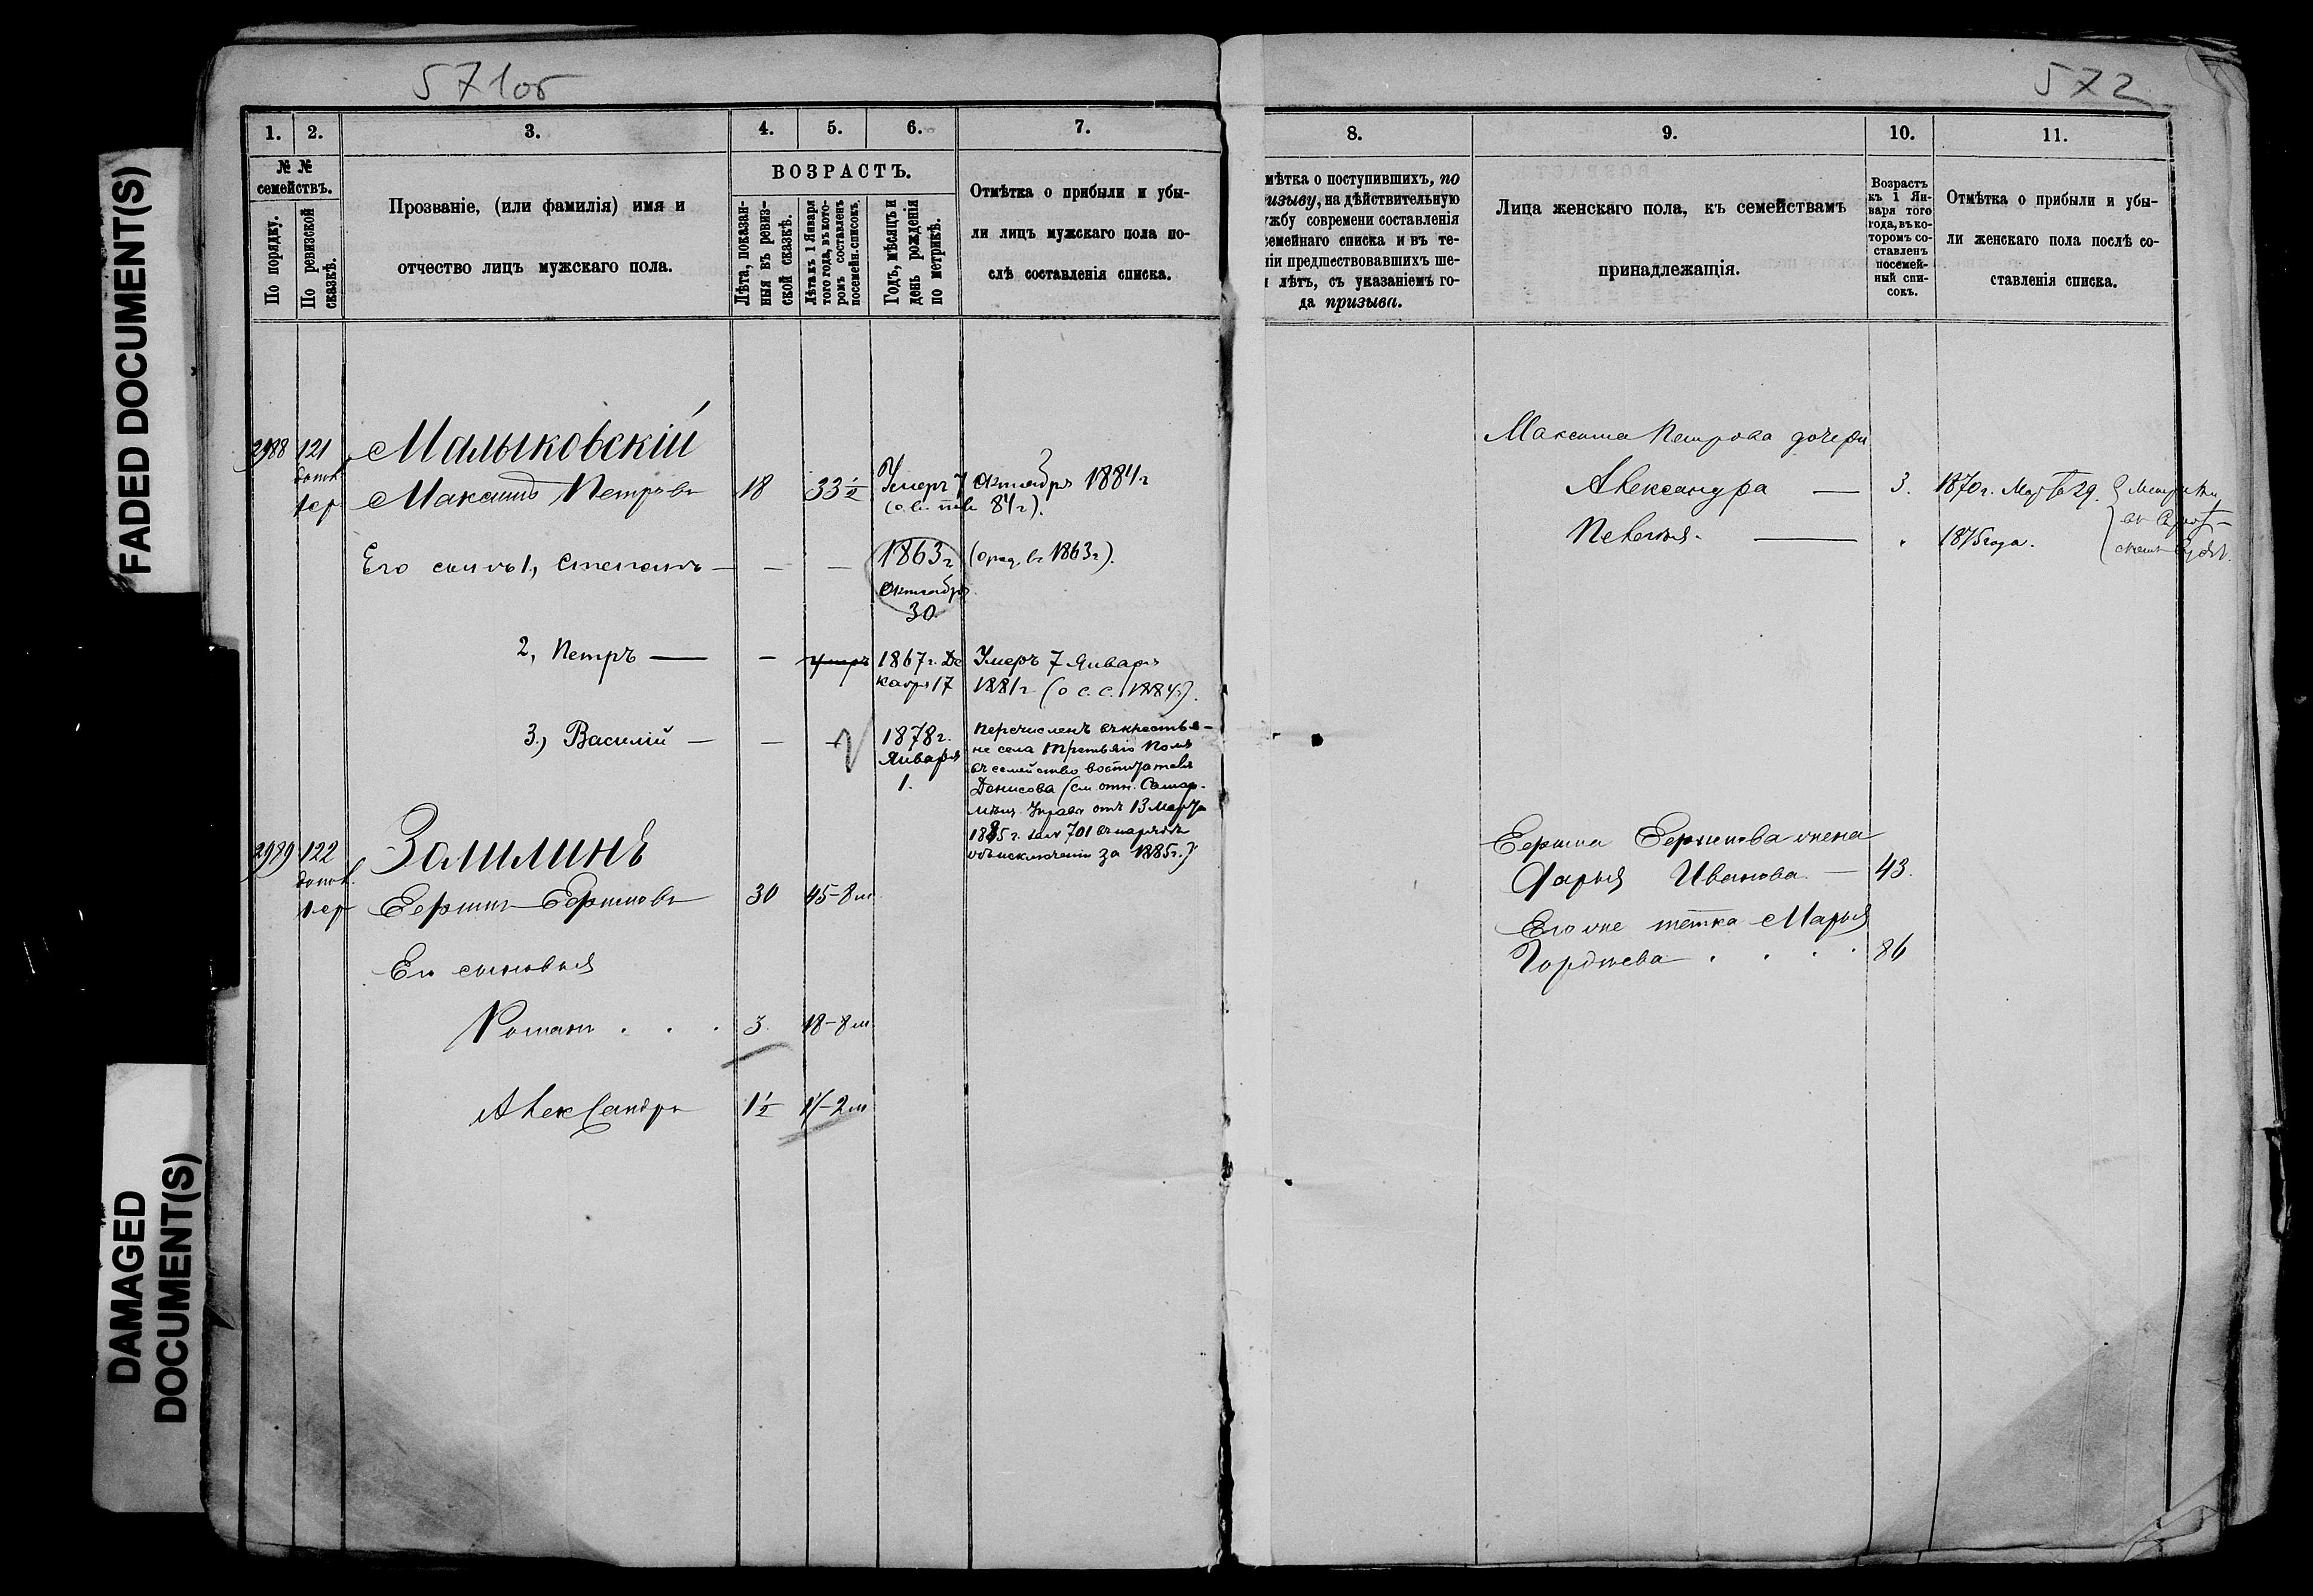 FADED DOCUMENT(S)
DAMAGED
DOCUMENT(S)
571об
1.
2.
3.
4.
5.
6.
7.
№ №
семействъ.
По порядку.
По ревизской
сказкѣ.
Прозваніе, (или фамилія) имя и
отчество лицъ мужскаго пола.
ВОЗРАСТЪ.
Лѣта, показан-
ныя въ ревиз-
ской сказкѣ.
Лѣта къ 1 Января
того года, въ кото-
ромъ составленъ
посемейн. списокъ.
Годъ, мѣсяцъ и
день рожденія
по метрикѣ.
Отмѣтка о прибыли и убы-
ли лицъ мужскаго пола по-
слѣ составленія списка.
2988 121
1 ср
Малыковскій
Максимъ Петровъ 18 33½
Умеръ 7 Октября 1884 г
84 г).
Его сынъ 1, Степанъ — — —
1863 г
Октября
30
1863 г).
2, Петръ — —
1867 г. Де
кабря 17
Умеръ 7 Января
1881 г (о с. с. 1884).
3, Василій — —
1878 г.
Января
1.
Перечисленъ въ крестья-
не села Третьяго Поля
въ семейство воспитателя
Данисова (см. отн. Самар.
Мѣщ. Управ. отъ 13 Марта
1885 г. за № 701 въ нарядѣ
объ исключеніи за 1885 г.)
2989 122
1 ср
Залилинъ
30 45-8 м
Его сыновья
Романъ . . . 3 18-8 м
Александръ 1½ 17-2 м
572
8.
9.
10.
11.
мѣтка о поступившихъ, по
изыву, на дѣйствительную
жбу современи составленія
емейнаго списка и въ те-
ніи предшествовавшихъ ше-
лѣтъ, съ указаніемъ го-
да призыва.
Лица женскаго пола, къ семействамъ
принадлежащія.
Возрастъ
къ 1 Ян-
варя того
года, въ ко-
торомъ со-
ставленъ
посемей-
ный спи-
сокъ.
Отмѣтка о прибыли и убы-
ли женскаго пола послѣ со-
ставленія списка.
Максима Петрова дочери
Александра — 3. 1870 г. Марта 29.
Пелагея — 1875 года.
жена
Дарья Иванова — 43.
Его же тетка Марья
Гордѣева . . . . 86